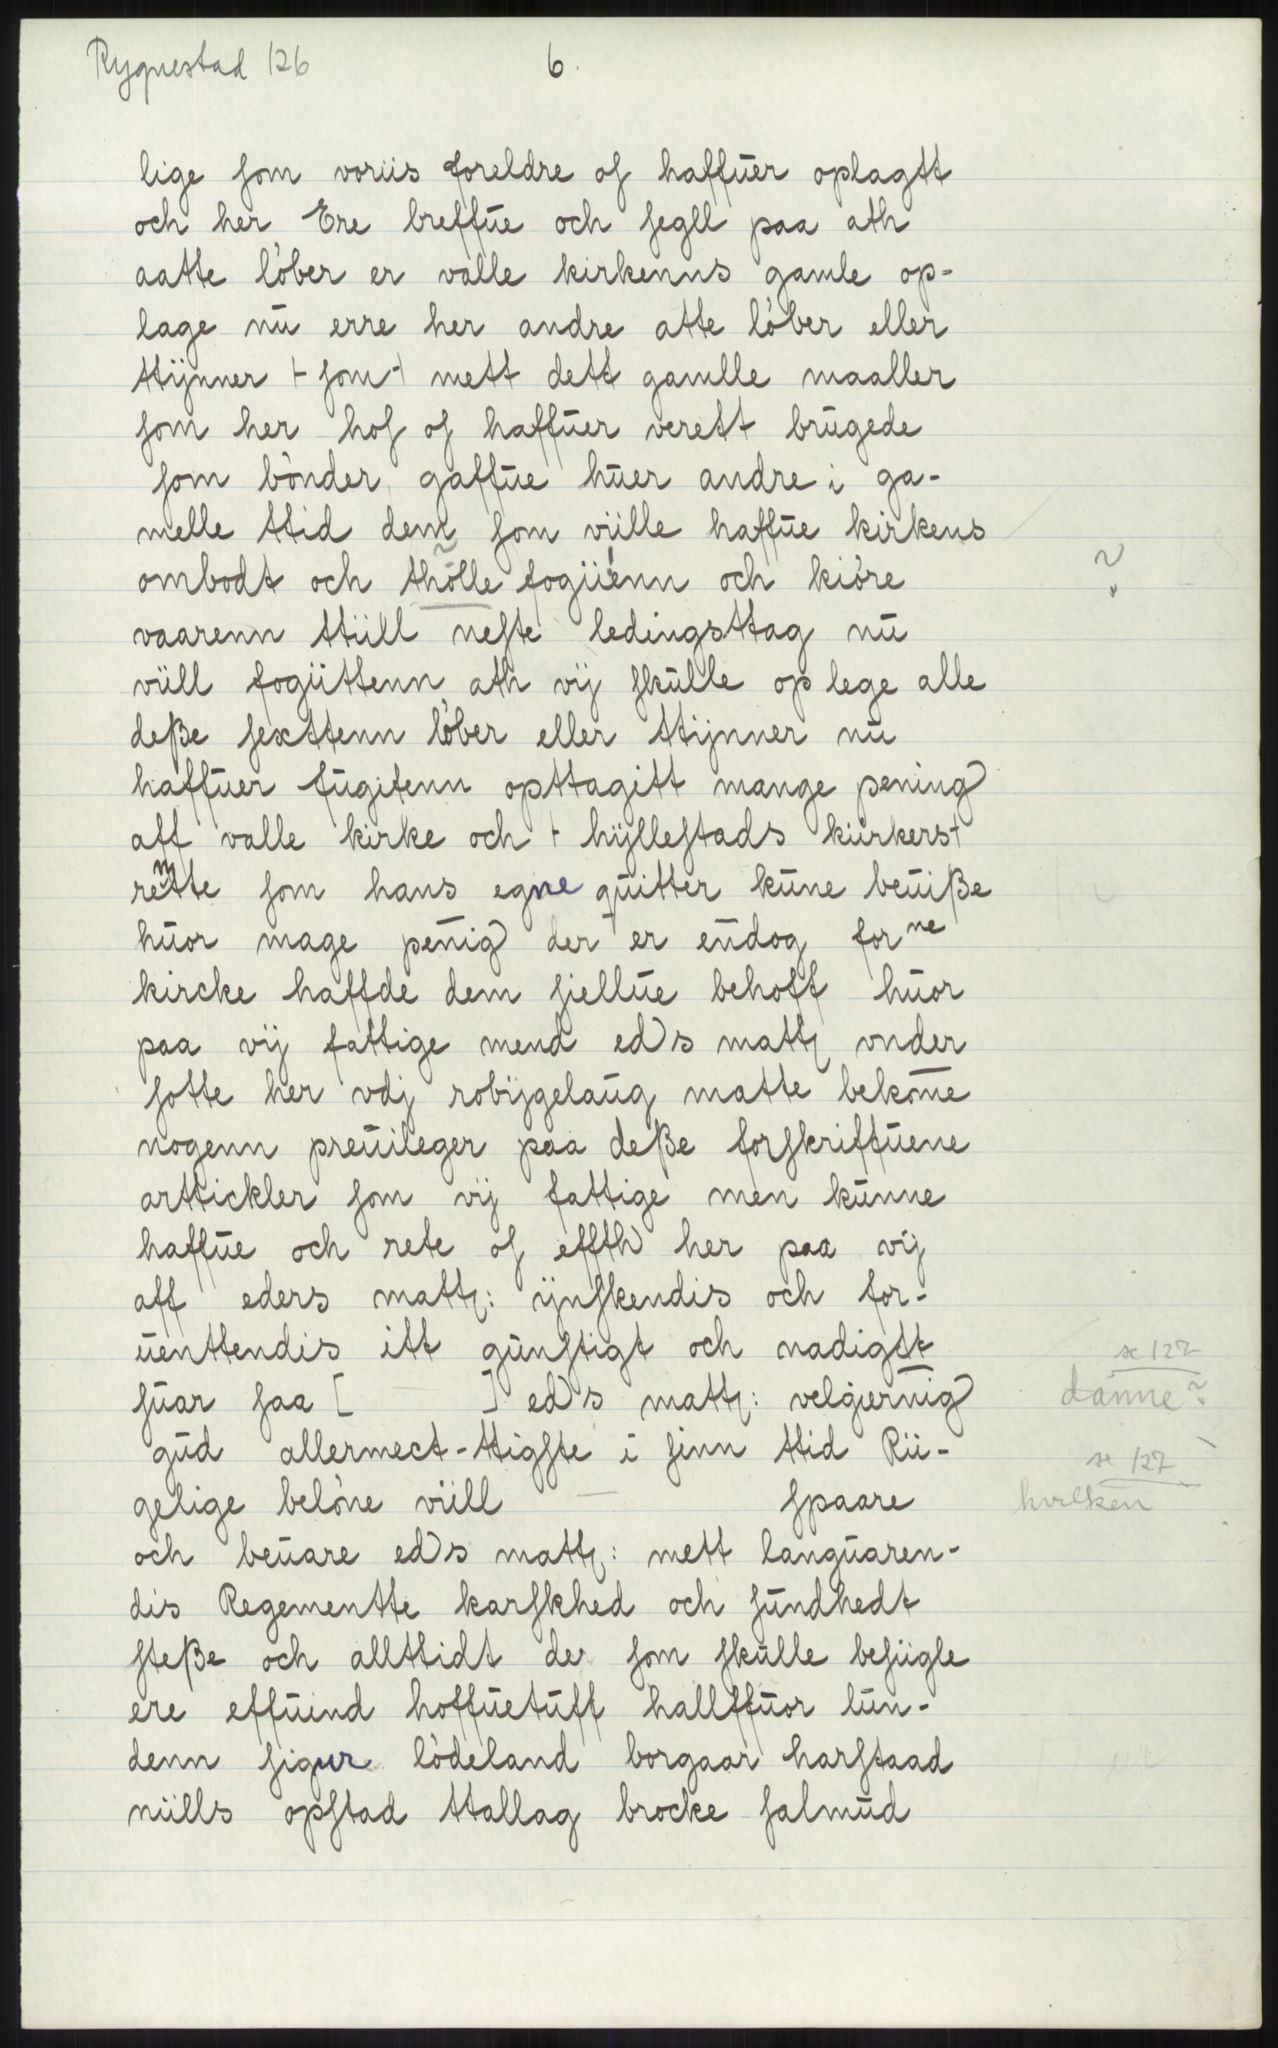 Rygnestad 126
6.
lige som voriis foreldre os haffūer oplagtt
och her Ere breffūe och segll paa ath
aatte löber er valle kirkenns gamle op-
lage nū erre her andre atte löber eller
ttÿnner ⊢ som ⊣ mett dett gamlle maaller
som her hos os haffūer verett brūgede
som bönder gaffūe hūer andre i ga-
melle ttid dem som viille haffūe kirkens
ombodt och thölle fogiienn och kiöre
?
vaarenn ttiill neste ledingsttag nū
viill fogiittenn ath vÿ skūlle op lege alle
deße sexttenn löber eller ttÿnner nū
haffūer fūgitenn opttagitt mange pening
aff valle kirke och ⊢ hÿllestads kiirkers ⊣
rentte som hans egne qūitter kūne beūiße
hūor mage penig der er endog for ne
kircke haffde dem siellūe behoff hūor
paa vÿ fattige mend eds matt vnder
sotte her vdj robÿgelaūg matte bekome
nogenn preūileger paa deße forskriffūene
arttickler som vÿ fattige men kūnne
haffūe och rete os effth her paa vÿ
aff eders matt: ÿnskendis och for-
ūenttendis itt gūnstigt och nadigtt
se 127
sūar saa [ ] eds matt: velgiernig
danne?
gūd allermect-ttigste i sinn ttid Rii-
se 127
gelige belöne viill — spaare
hvilken
och beūare eds matt: mett langūaren-
dis Regementte karskhed och sūndhedt
steße och allttidt der som skūlle besiigle
ere effūind hoffūetūff hallffūor lūn-
denn sigūr lödeland borgaar harstaad
niills opstad ttallag brocke salmūd